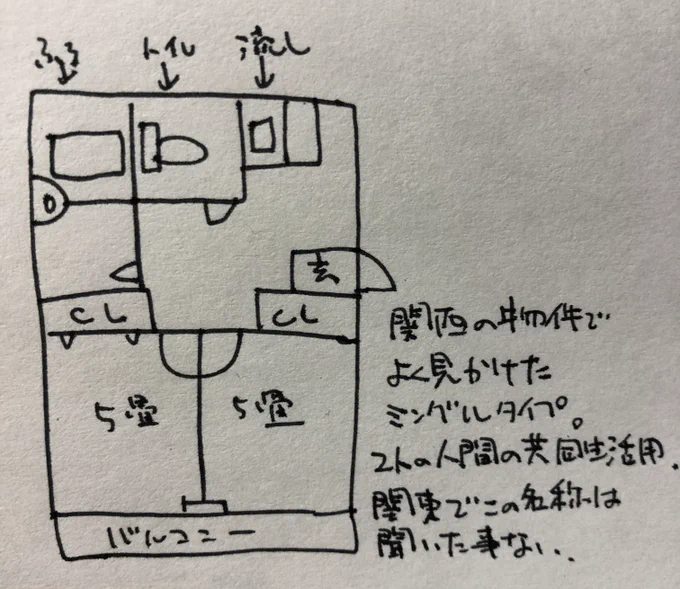 ふろ
トイレ
流し
玄
CL
CL
5畳
5畳
バルコニー
関西の物件で
よく見かけた
ミングルタイプ。
2人の人間の共同生活用。
関東でこの名称は
聞いた事ない。